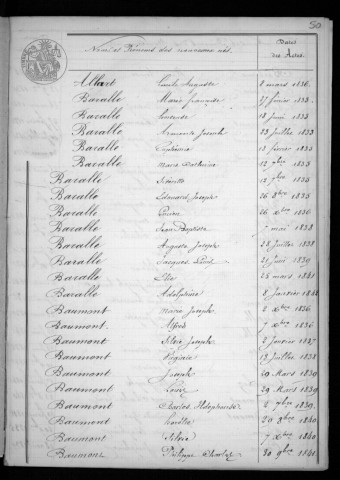 50
Noms et Prénoms des nouveaux nés.
Dates des Actes.
Allart Emile Auguste 8 mars 1836.
Baralle Marie françoise 27 février 1833.
Baralle 18 juin 1833
Baralle Armante Joseph 23 Juillet 1833
Baralle Euphémie 18 février 1835
Baralle Marie Catherine 12 9bre 1835
Baralle 12 9bre 1835
Baralle Edouard Joseph 26 8bre 1835
Baralle 26 Xbre 1836
Baralle Jean Baptiste mai 1838
Baralle Auguste Joseph 28 Juillet 1838
Baralle Jacques Louis 21 Juin 1839
Baralle Elie 25 mars 1841
Baralle Adolphine 8 Janvier 1842
Baumont Marie Joseph 2 Xbre 1836
Baumont Alfred 7 Xbre 1836
Baumont Silvie Joseph 2 février 1837
Baumont Virginie 13 Juillet 1838
Baumont Joseph 29 Mars 1839
Baumont Louis 29 Mars 1839
Baumont Charles Adolphonse 1839
Baumont 20 8bre 1840
Baumont Silvie 7 Xbre 1840
Baumont Philippe Charles 30 9bre 1841